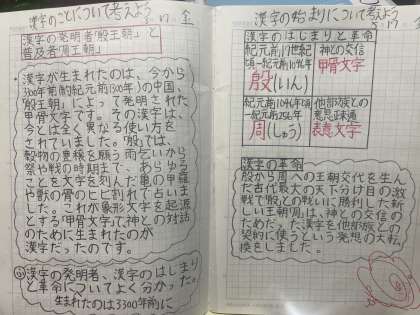 漢字のことについて考えよう
5.17 金
漢字の発明者「殷王朝」と
普及者「周王朝」
漢字が生まれたのは、今から
3300年前(紀元前1300年)の中国、
「殷王朝」によって発明された
甲骨文字です。その漢字は、
今とは全く異なる使い方を
されていました。「殷」では、
穀物の豊穣を願う雨乞いから
祭や戦の時期まで、あらゆる
ことを文字を刻んだ亀の甲羅
や獣の骨のヒビ割れで占いま
した。これが象形文字を起源
とする「甲骨文字」で、神との対話
のために生まれたのが
漢字だったのです。
漢字の発明者、漢字のはじまり
と革命についてよく分かった。
生まれたのは3300年前に
漢字の始まりについて考えよう
5.17 金
漢字のはじまりと革命
紀元前17世紀
頃-紀元前1046年
神との交信
甲骨文字
殷(いん)
紀元前1046年頃
-紀元前256年
他部族との
意思疎通
周(しゅう)
表意文字
漢字の革命
殷から周への王朝交代を生ん
だ古代最大の天下分け目の激
戦で「殷」との戦いに勝利した新
しい王朝「周」は、神との交信の
ためだった漢字を他部族との
契約に使うという発想の大転
換をしました。